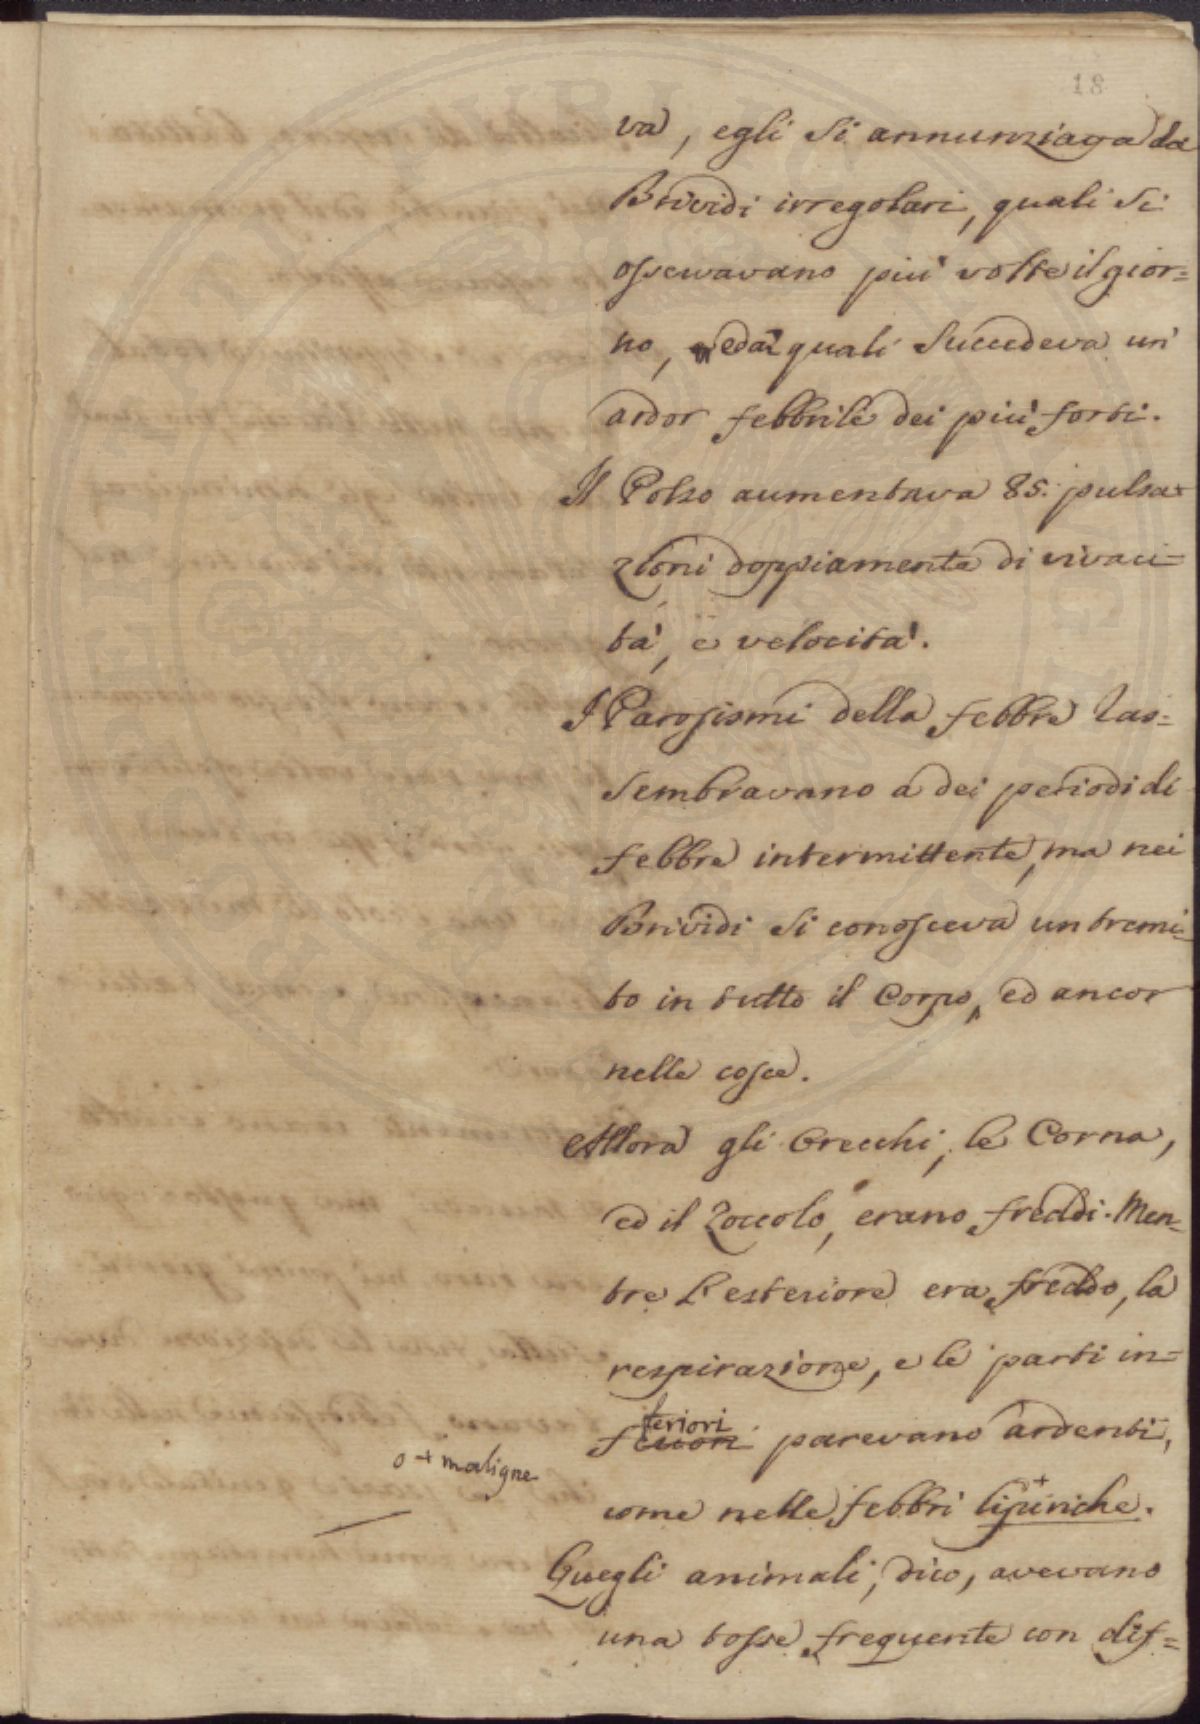 18
va, egli si annunziava da
Brividi irregolari, quali si
osservavano piu' volte il gior=
no, edai quali succedeva un'
ardor febbrile dei piu' forti.
Il Polso aumentava 85. pulsa=
zioni doppiamente di vivaci=
ta', e velocita'.
I Parosismi della febbre ras=
sembravano a dei periodi di
febbre intermittente, ma nei
Brividi si conosceva un tremi=
to in tutto il Corpo, ed ancor
nelle cosce.
Allora gli Orecchi, le Corna,
ed il Zoccolo, erano freddi. Men=
tre l'esteriore era freddo, la
respirazione, e le parti in=
teriori
parevano ardenti,
o + maligne
come nelle febbri lipiriche. +
Quegli animali, dico, avevano
una tosse frequente con dif=